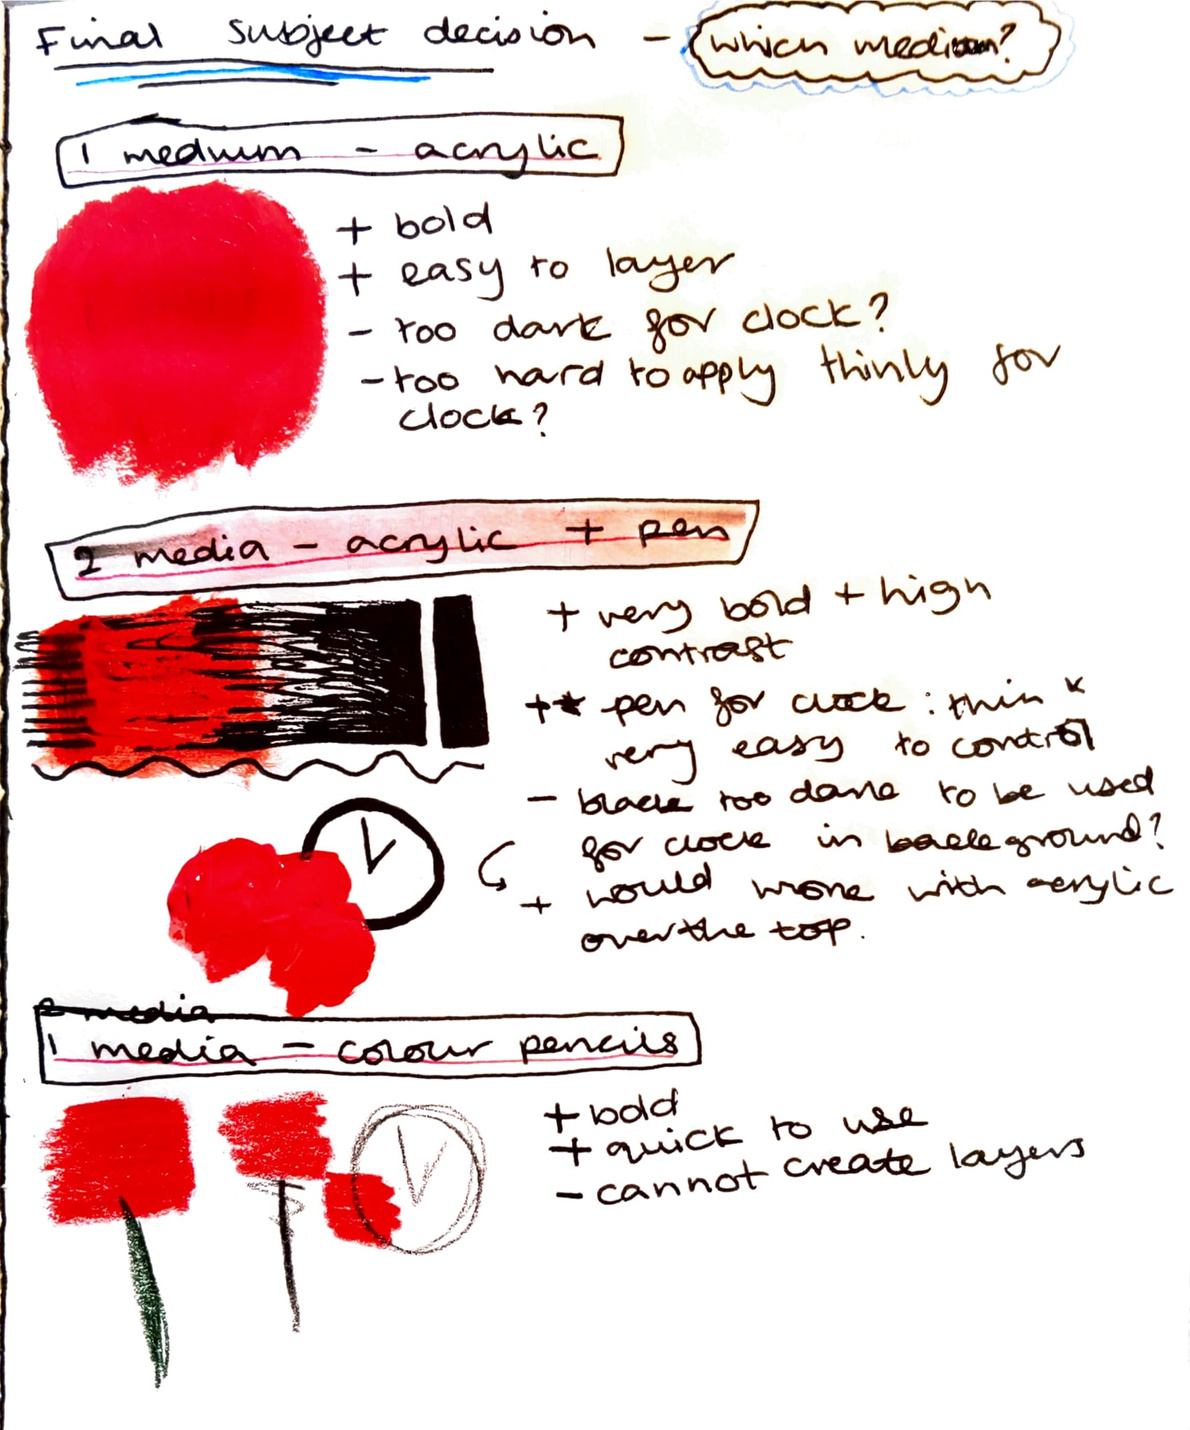 Final subject decision - which medium?
1 medium - acrylic
+ bold
+ easy to layer
- too dark for clock?
- too hard to apply thinly for
clock?
2 media - acrylic + pen
+ very bold + high
contrast
+* pen for clock : thin *
very easy to control
- black too dark to be used
for clock in background?
+ would work with acrylic
over the top.
2 media
1 media - colour pencils
+ bold
+ quick to use
- cannot create layers